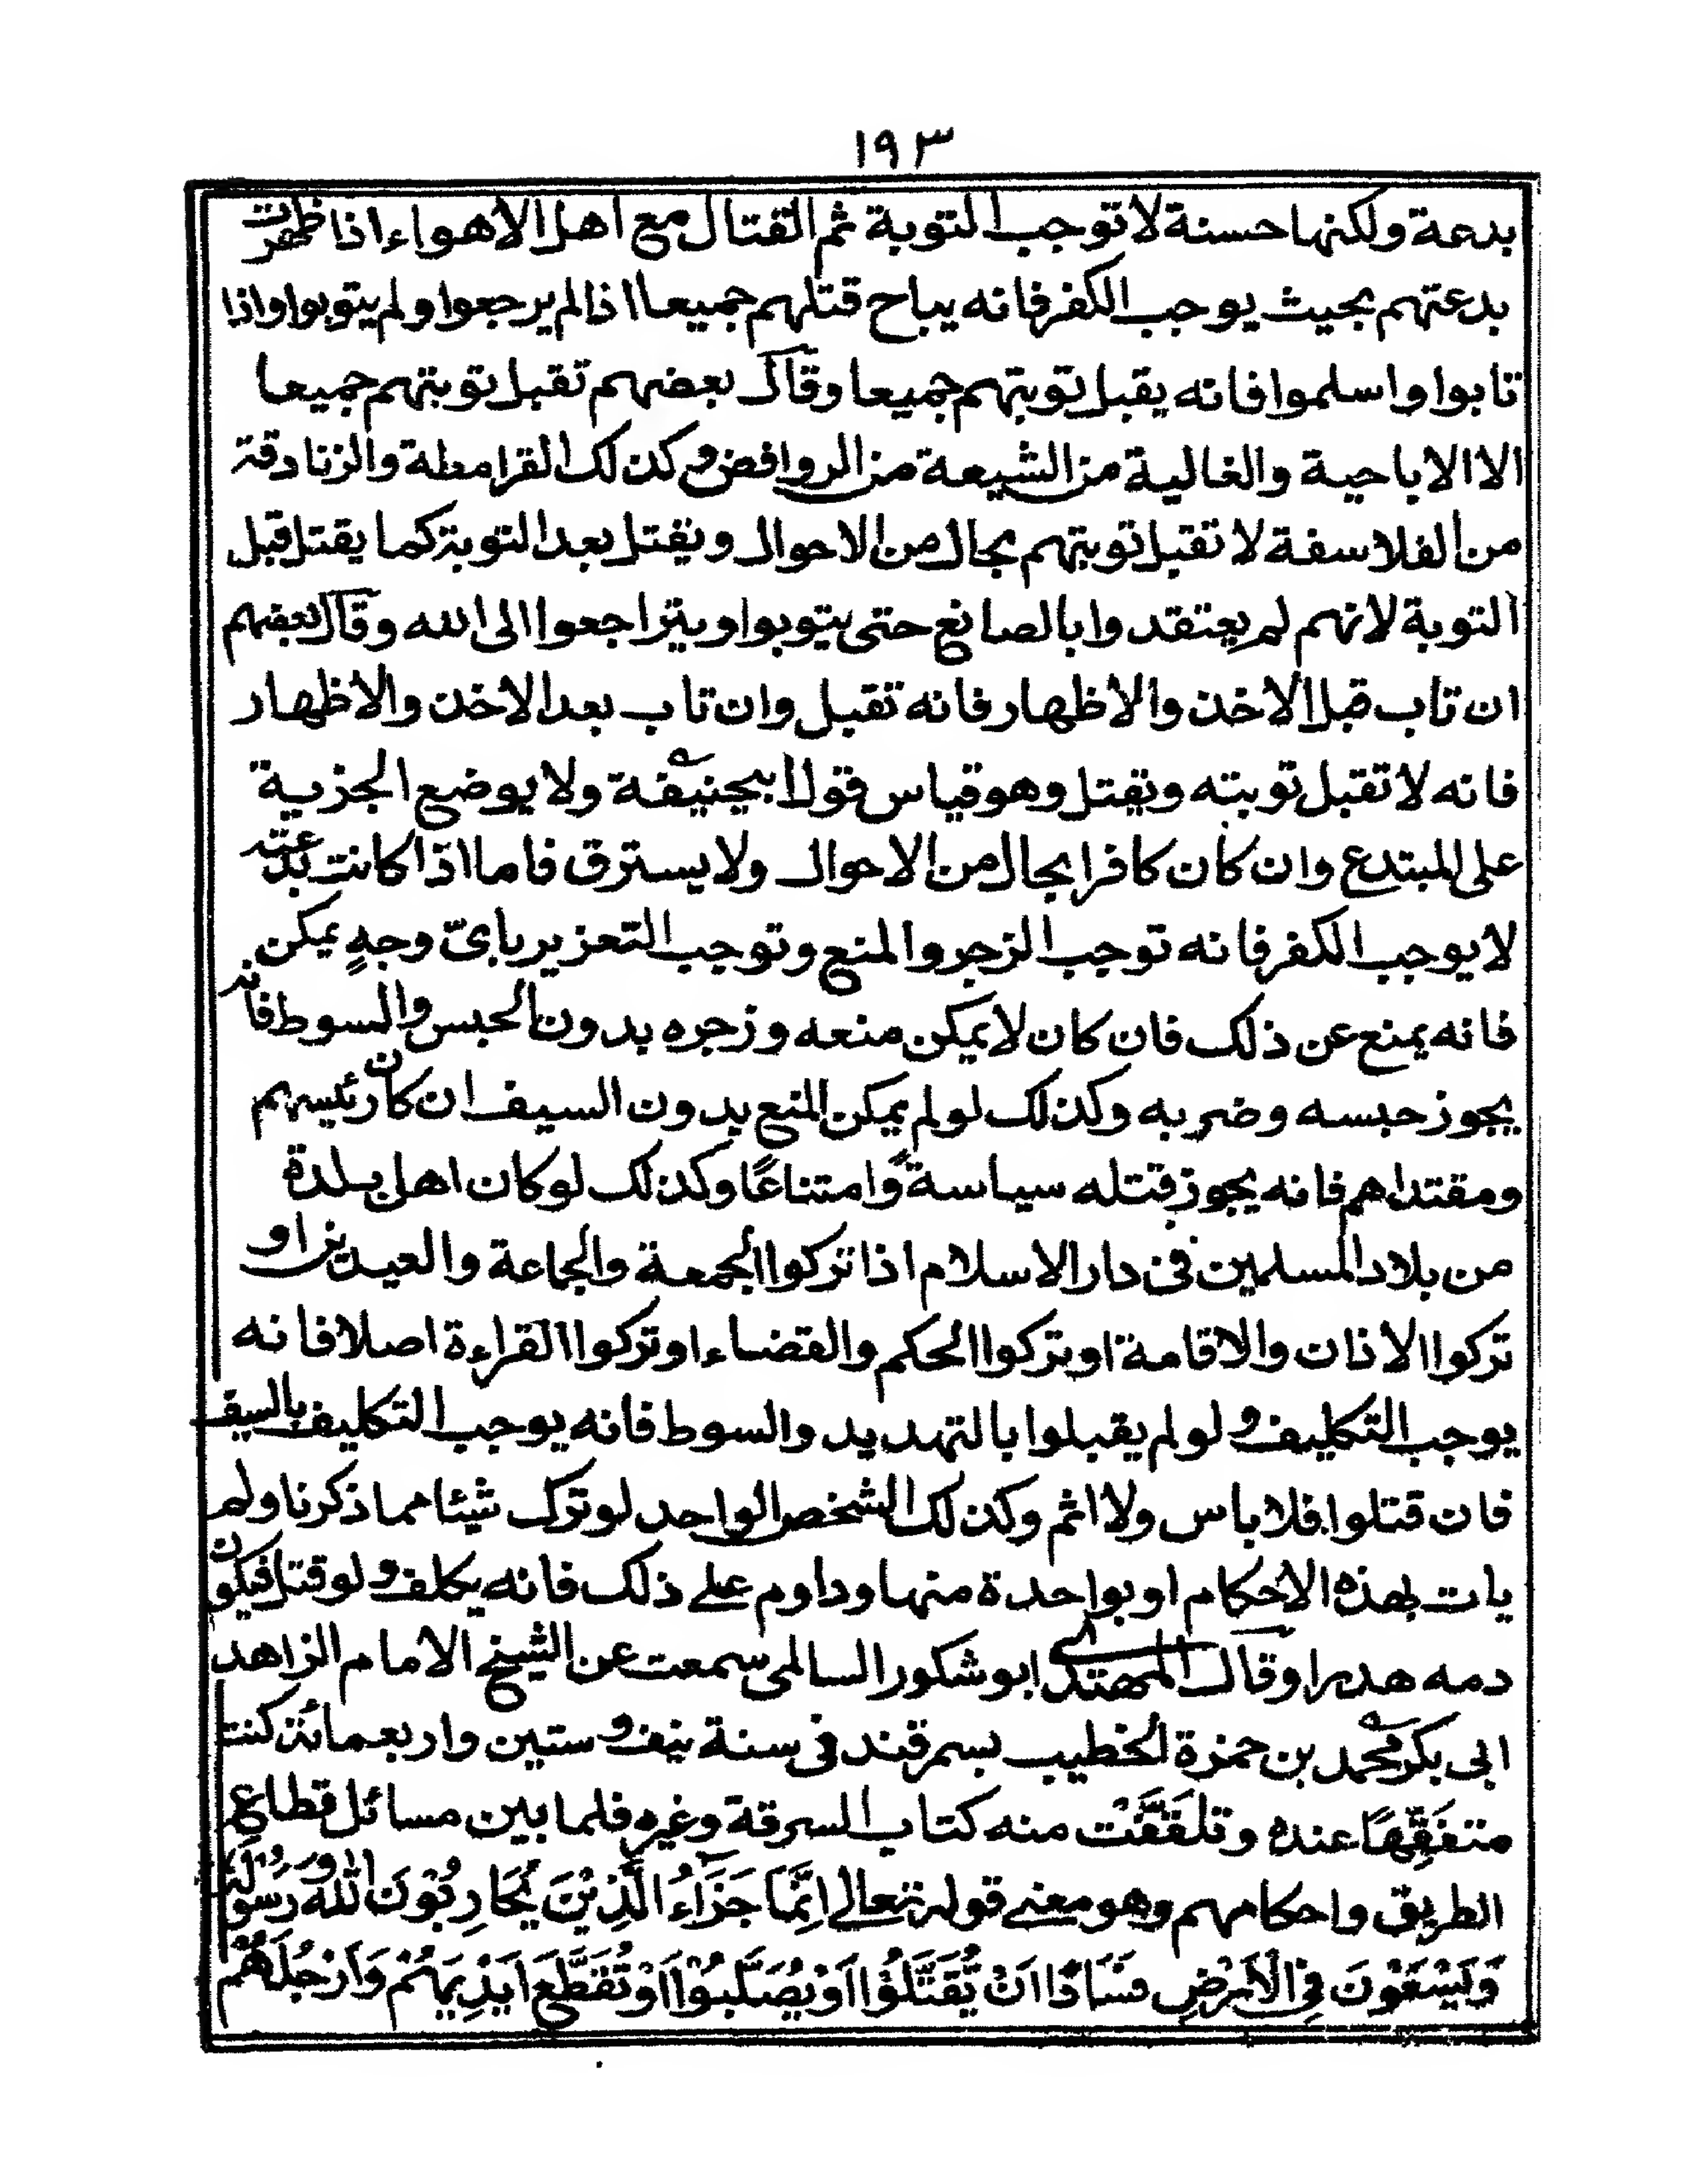 ١٩٣
بدعة ولكنها حسنة لا توجب التوبة ثم القتال مع اهل الاهواء اذا ظهرت
بدعتهم بحيث يوجب الكفر فانه يباح قتلهم جميعا اذا لم يرجعوا ولم يتوبوا واذا
تابوا واسلموا فانه يقبل توبتهم جميعا وقال بعضهم تقبل توبتهم جميعا
الا الاباحية والغالية من الشيعة من الروافض وكذلك القرامطة والزنادقة
من الفلاسفة لا تقبل توبتهم بحال من الاحوال ويقتل بعد التوبة كما يقتل قبل
التوبة لانهم لم يعتقدوا بالصانع حتى يتوبوا ويتراجعوا الى الله وقال بعضهم
ان تاب قبل الاخذ والاظهار فانه تقبل وان تاب بعد الاخذ والاظهار
فانه لا تقبل توبته ويقتل وهو قياس قول ابيحنيفة ولا يوضع الجزية
على المبتدع وان كان كافرا بحال من الاحوال ولا يسترق فاما اذا كانت بدعته
لا يوجب الكفر فانه توجب الزجر والمنع وتوجب التعزير باىّ وجهٍ يمكن
فانه يمنع عن ذلك فان كان لا يمكن منعه وزجره بدون الحبس والسوط فانه
يجوز حبسه وضربه وكذلك لو لم يمكن المنع بدون السيف ان كان رئيسهم
ومقتداهم فانه يجوز قتله سياسةً وامتناعًا وكذلك لو كان اهل بلدة
من بلاد المسلمين فى دار الاسلام اذا تركوا الجمعة والجماعة والعيدين او
تركوا الاذان والاقامة او تركوا الحكم والقضاء او تركوا القراءة اصلا فانه
يوجب التكليف ولو لم يقبلوا بالتهديد والسوط فانه يوجب التكليف بالسيف
فان قتلوا فلا باس ولا اثم وكذلك الشخص الواحد لو ترك شيئا مما ذكرنا ولم
يات بهذه الاحكام او بواحدة منها وداوم على ذلك فانه يكلف ولو قتل فيكون
دمه هدرا وقال المهتدى ابو شكور السالمى سمعت عن الشيخ الامام الزاهد
ابى بكر محمد بن حمزة الخطيب بسمرقند فى سنة نيف وستين واربعمائة كنت
متفَقِّهًا عنده وتلقّفْت منه كتاب السرقة وغيره فلما بين مسائل قطاع
الطريق واحكامهم وهو معنى قوله تعالى اِنَّمَا جَزَآءُ الَّذِيْنَ يُحَارِبُوْنَ اللّٰهَ وَرَسُوْلَهٗ
وَيَسْعَوْنَ فِى الْاَرْضِ فَسَادًا اَنْ يُّقَتَّلُوْا اَوْ يُصَلَّبُوْا اَوْ تُقَطَّعَ اَيْدِيْهِمْ وَاَرْجُلُهُمْ